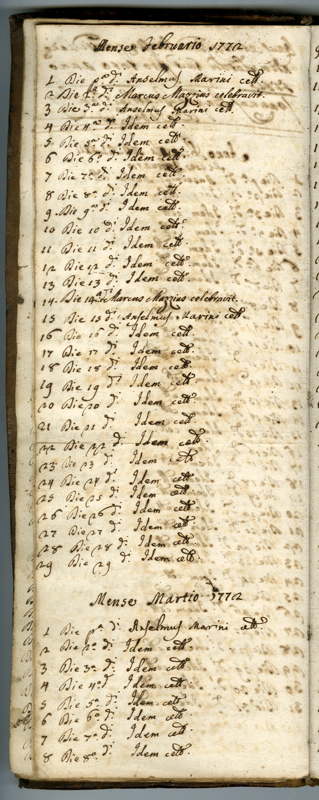 Mense Februario 1772
1 Die pa di Anselmus Marini celt.
2 Die 2a di Marcus Mazzius celebravit.
3 Die 3a di Anselmus Marini celt.
4 Die 4a di Idem celt.
5 Die 5a di Idem celt.
6 Die 6a di Idem celt.
7 Die 7a di Idem celt.
8 Die 8a di Idem celt.
9 Die 9a di Idem celt.
10 Die 10 di Idem celt.
11 Die 11 di Idem celt.
12 Die 12 di Idem celt.
13 Die 13 di Idem celt.
14 Die 14 di Marcus Mazzius celebravit.
15 Die 15 di Anselmus Marini celt.
16 Die 16 di Idem celt.
17 Die 17 di Idem celt.
18 Die 18 di Idem celt.
19 Die 19 di Idem celt.
20 Die 20 di Idem celt.
21 Die 21 di Idem celt.
22 Die 22 di Idem celt.
23 Die 23 di Idem celt.
24 Die 24 di Idem celt.
25 Die 25 di Idem celt.
26 Die 26 di Idem celt.
27 Die 27 di Idem celt.
28 Die 28 di Idem celt.
29 Die 29 di Idem celt.
Mense Martio 1772
1 Die pa di Anselmus Marini celt.
2 Die 2a di Idem celt.
3 Die 3a di Idem celt.
4 Die 4a di Idem celt.
5 Die 5a di Idem celt.
6 Die 6a di Idem celt.
7 Die 7a di Idem celt.
8 Die 8a di Idem celt.